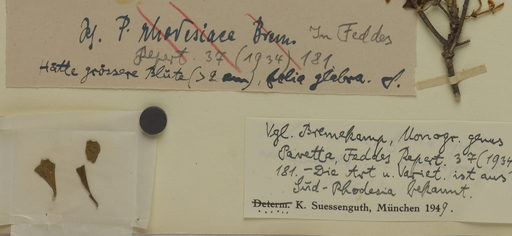 P. rhodesiaca Brem. In Feddes
Repert. 37 (1934) 181
Hätte grössere Blüte (>2 cm), folia glabra.
Vgl. Bremekamp, Monogr. genus
Pavetta, Feddes Repert. 37 (1934
181. – Die Art u. Variet. ist aus
Süd-Rhodesia bekannt.
Determ. K. Suessenguth, München 1949.